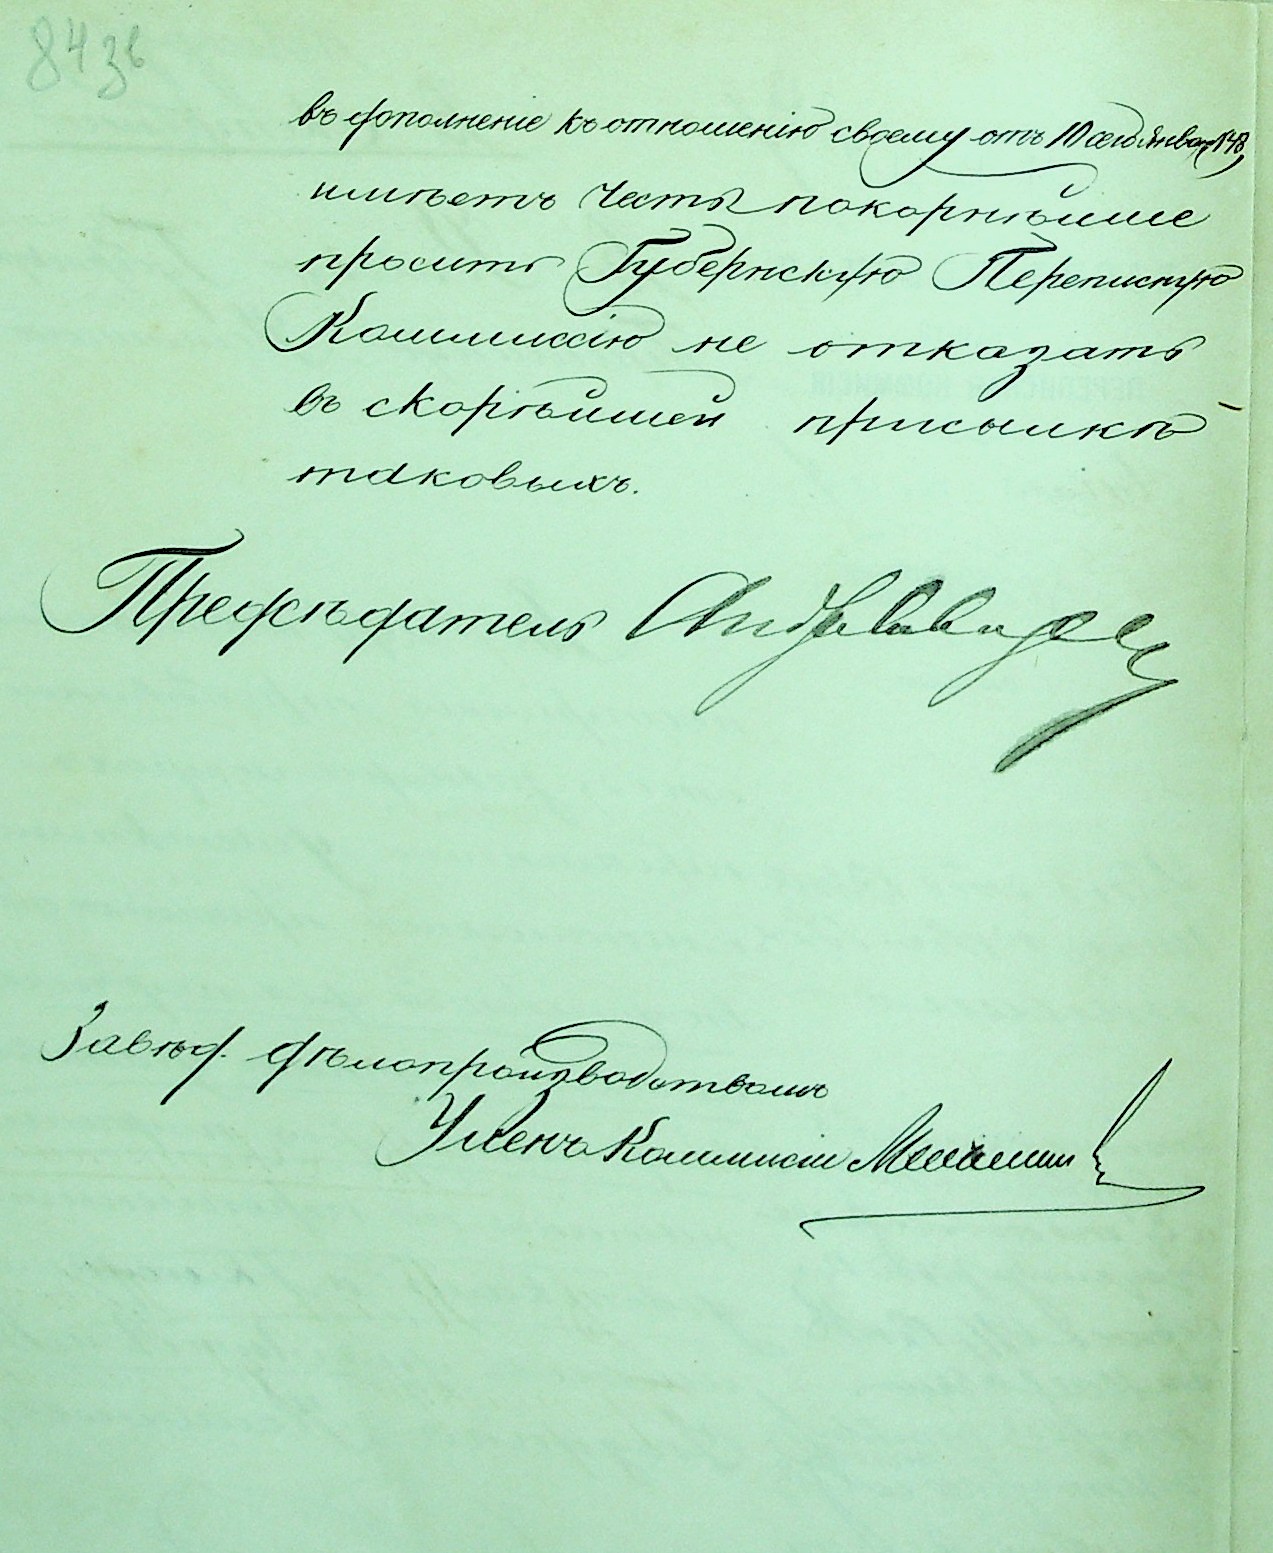 843б
въ дополненіе къ отношенію своему отъ 10 сего Января
имѣетъ честь покорнѣйше
просить Губернскую Переписную
Коммиссію не отказать
въ скорѣйшей присылкѣ
таковыхъ.
Предсѣдатель
Завѣд. дѣлопроизводствомъ
Членъ Коммисіи